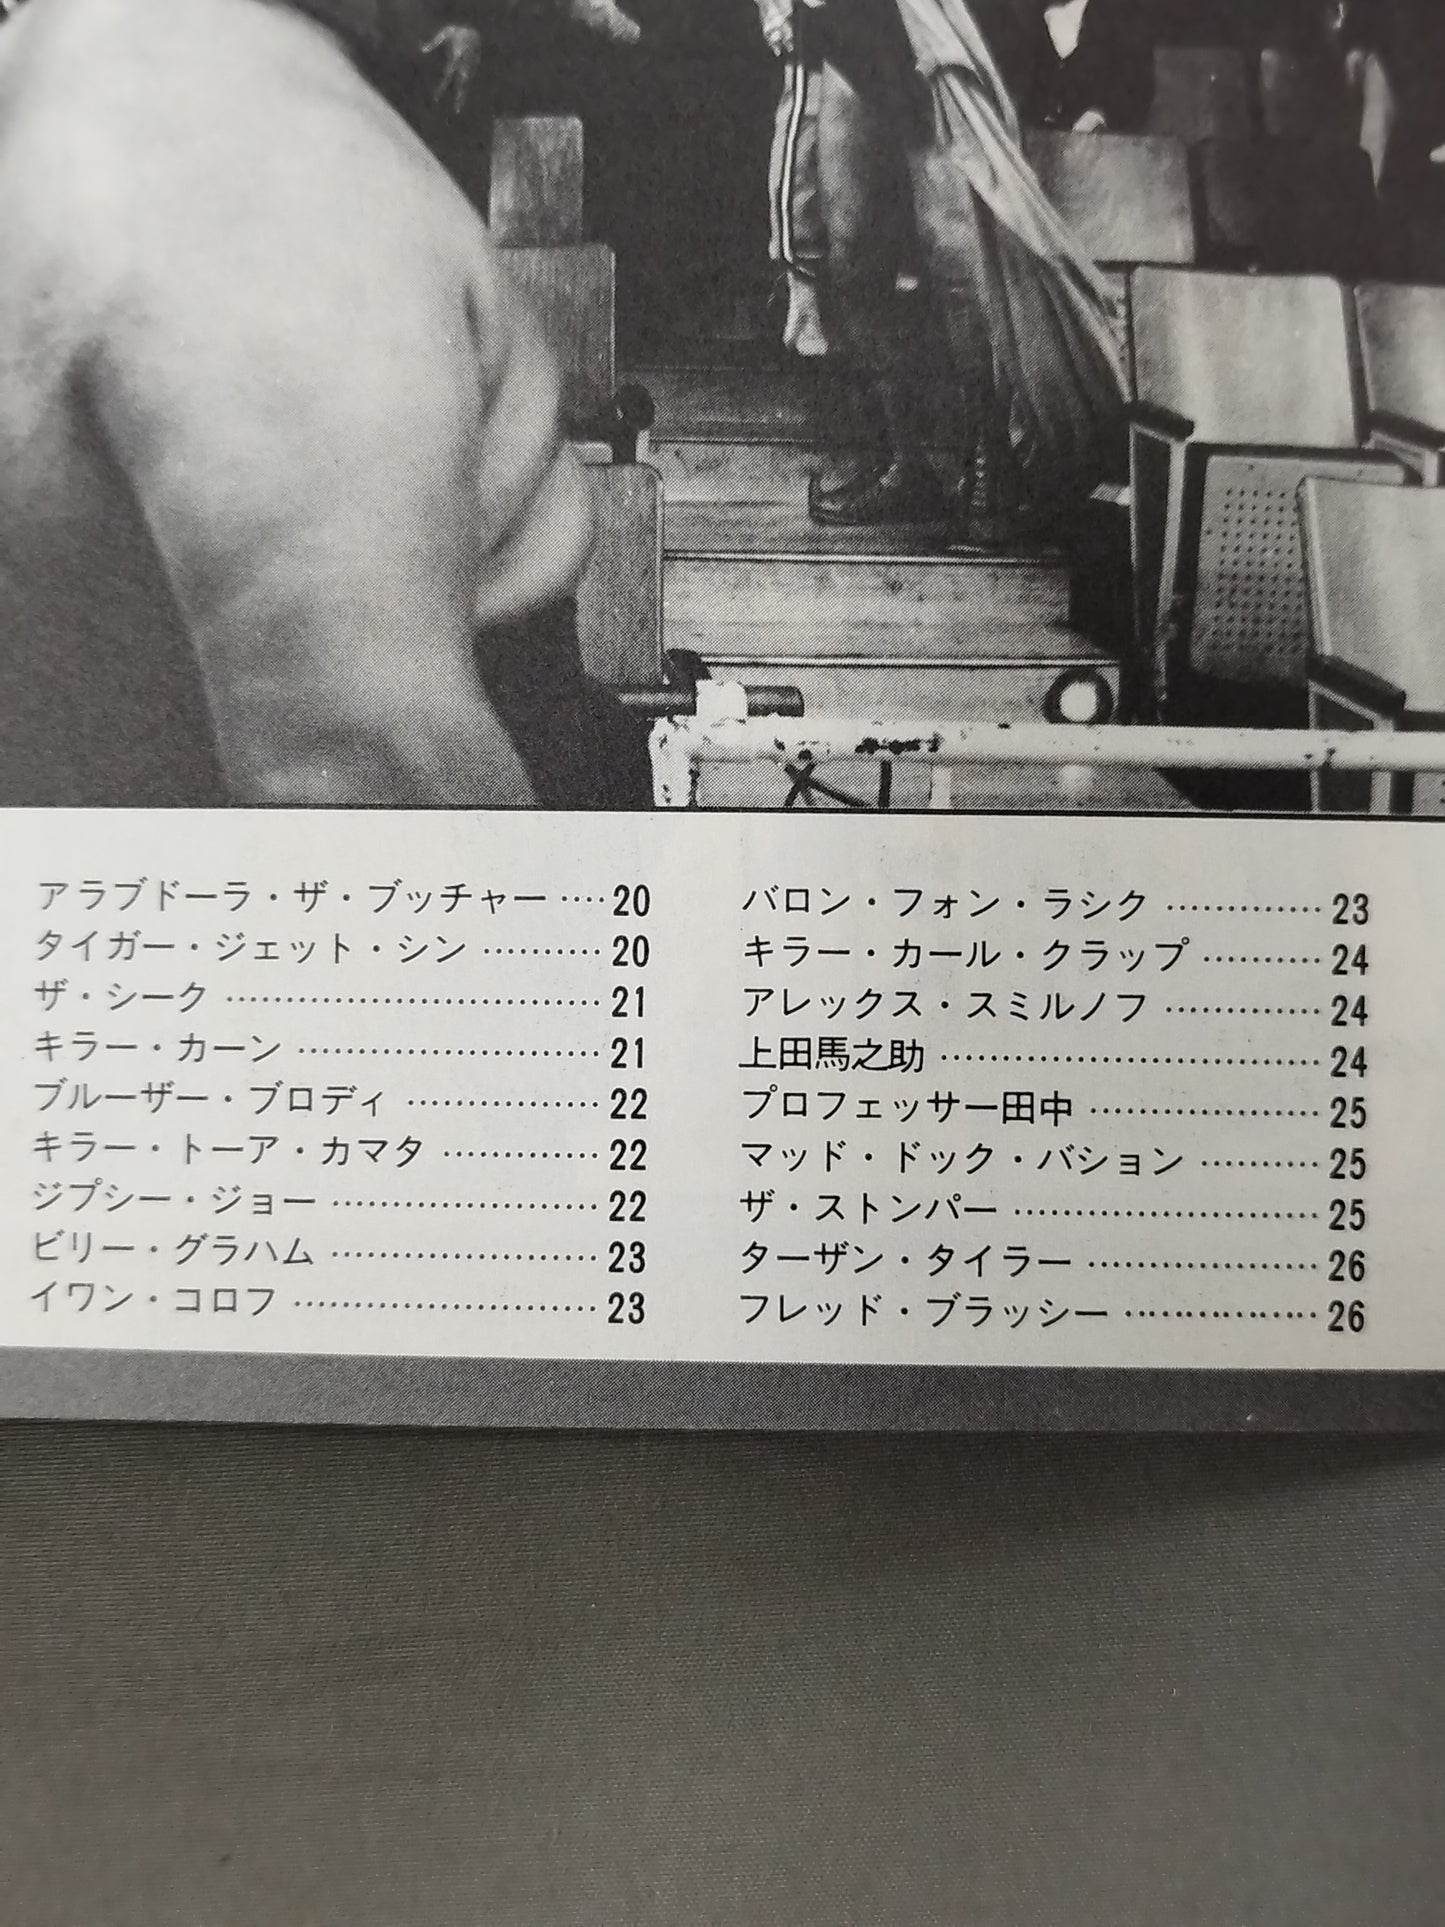 アラブドーラ・ザ・ブッチャー····20
タイガー・ジェット・シン··········20
ザ・シーク·······························21
キラー・カーン·························21
ブルーザー・ブロディ················22
キラー・トーア・カマタ·············22
ジプシー・ジョー······················22
ビリー・グラハム······················23
イワン・コロフ·························23
バロン・フォン・ラシク·············23
キラー・カール・クラップ··········24
アレックス・スミルノフ·············24
上田馬之助································24
プロフェッサー田中···················25
マッド・ドック・バション··········25
ザ・ストンパー·························25
ターザン・タイラー···················26
フレッド・ブラッシー················26